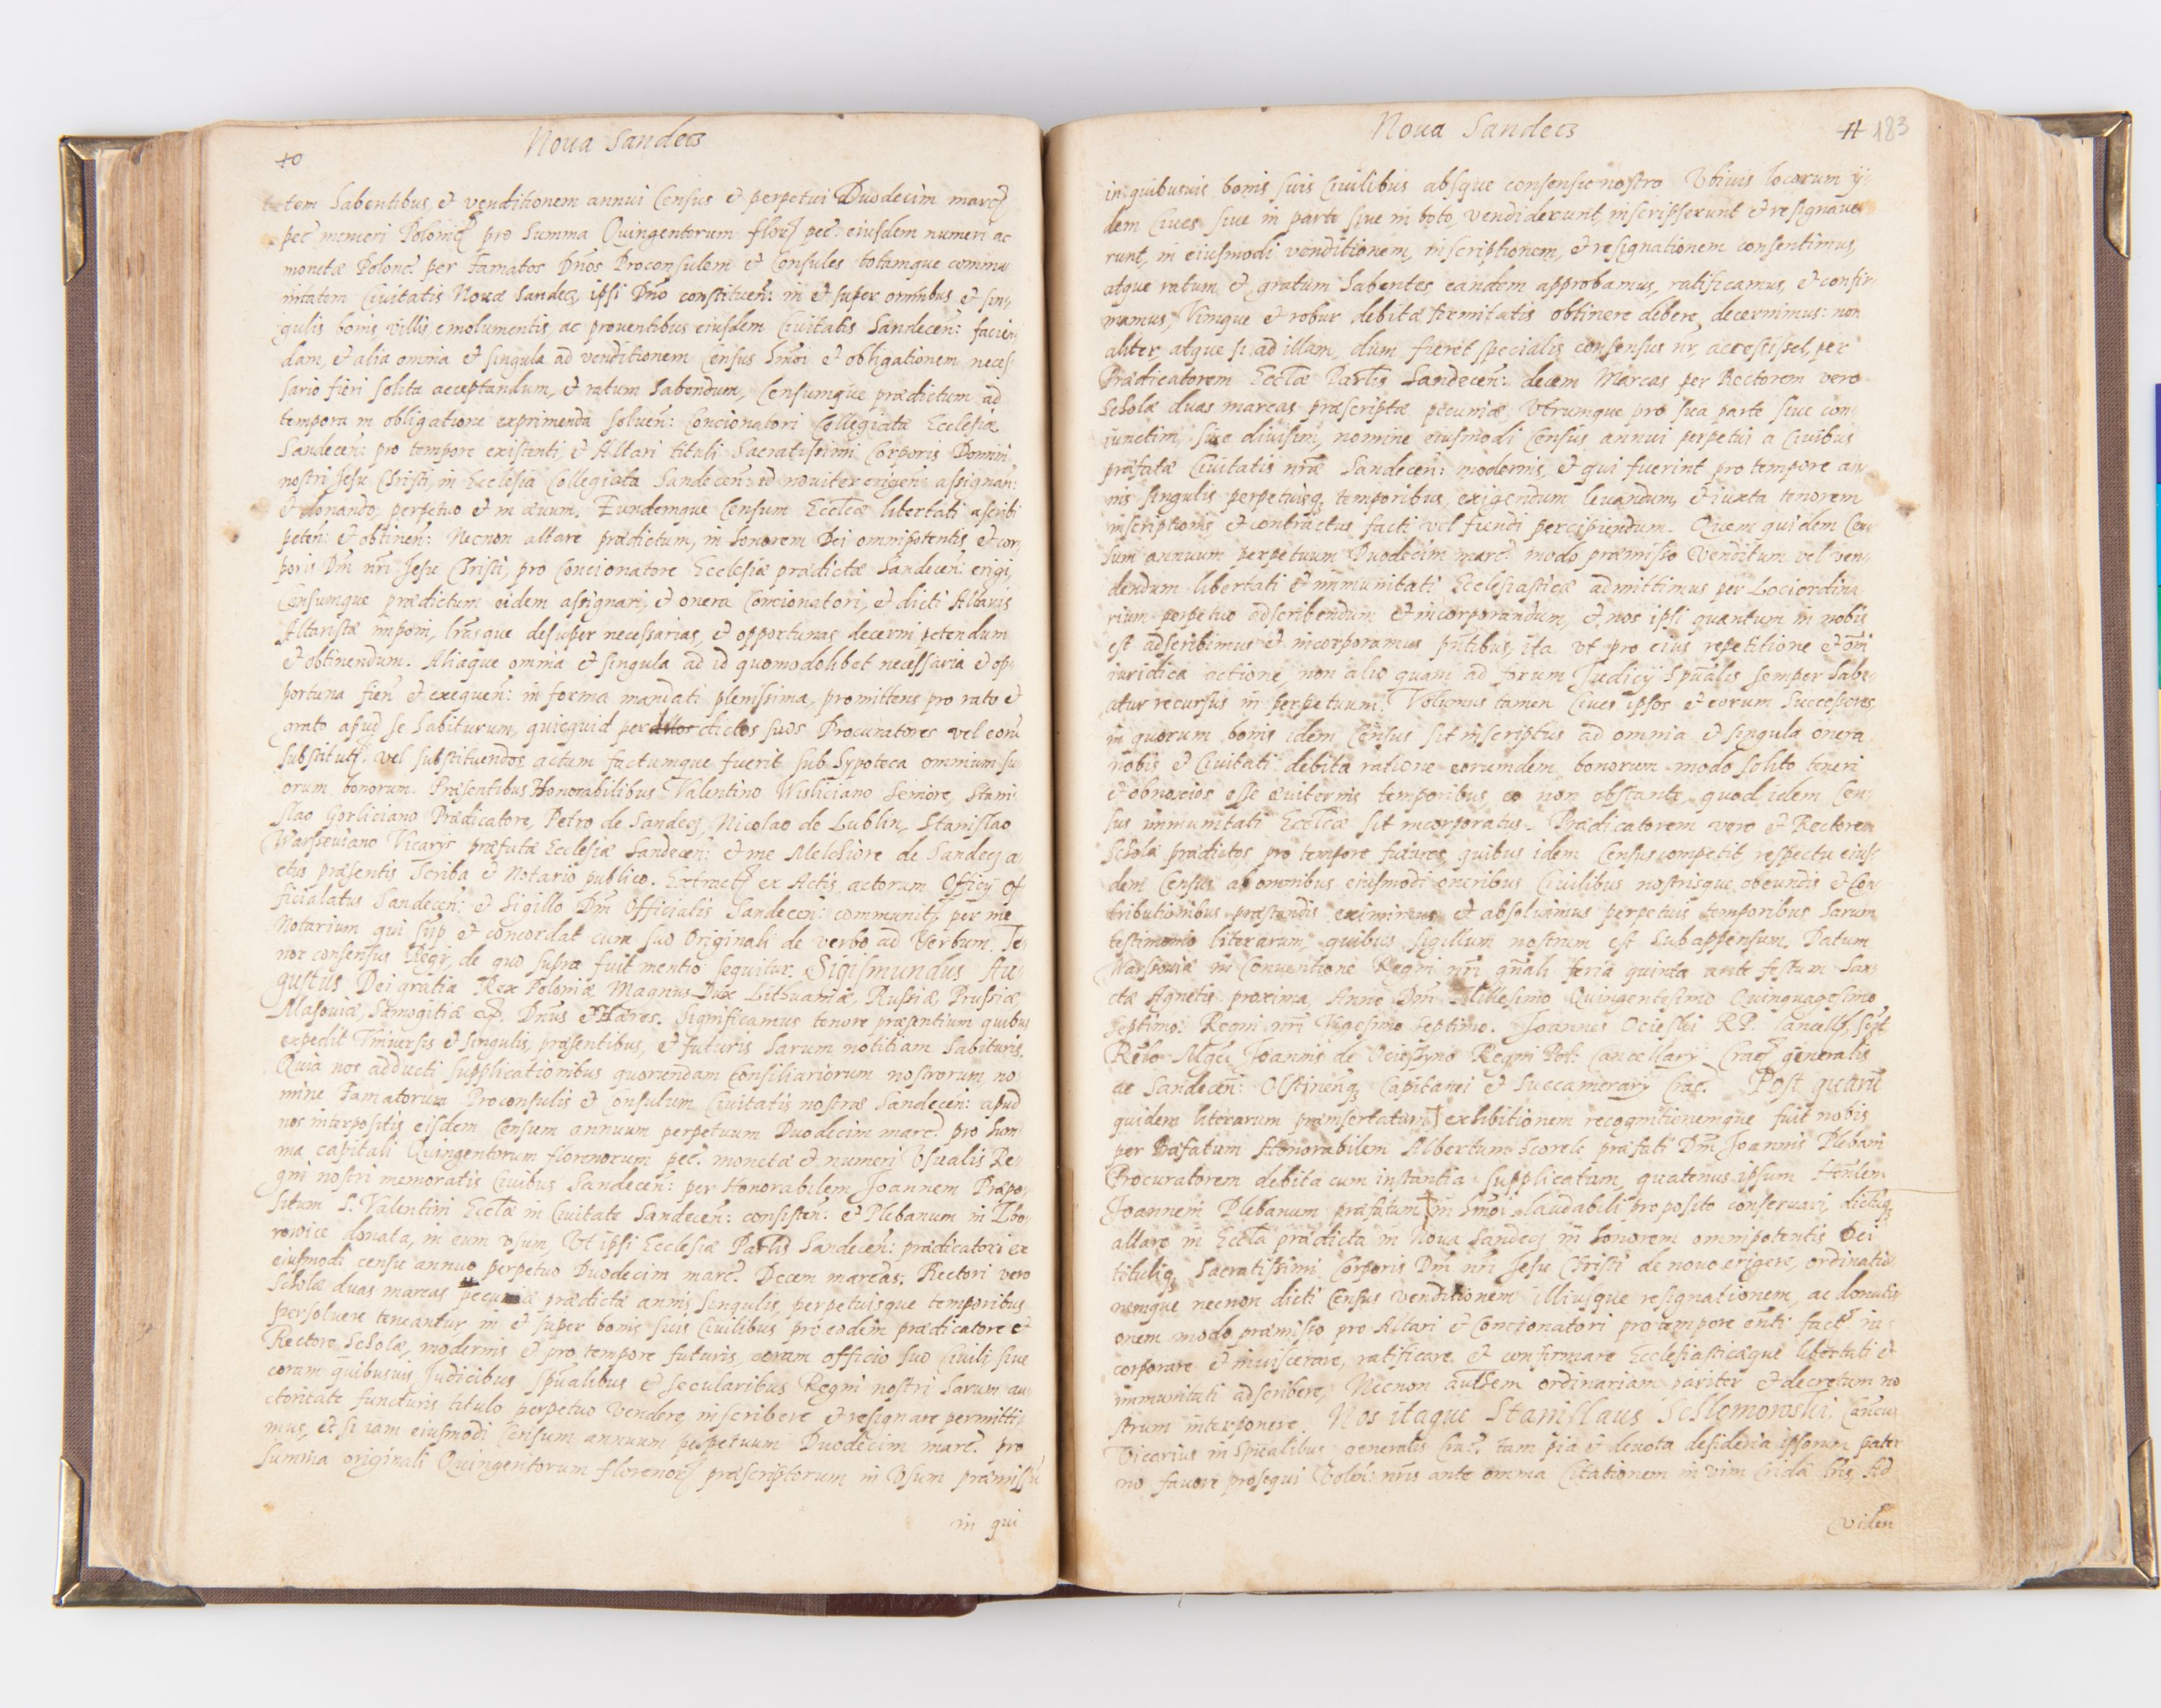 40
Noua Sandecz
tem habentibus, et venditionem annui Census et perpetui Duodecim marc
pec numeri Polonic pro Summa Quingentorum flor pec: eiusdem numeri ac
monetæ Polonc: per Famatos Dnos Proconsulem et Consules totamque commu
nitatem Ciuitatis Nouæ Sandec, ipsi Dno constituen: in et super omnibus et sin
gulis bonis, villis, emolumentis, ac prouentibus eiusdem Ciuitatis Sandecen: facien
dam, et alia omnia et singula ad venditionem Census hmoi et obligationem neces
sario fieri solita acceptandum, et ratum habendum, Censumque prædictum ad
tempora in obligatione exprimenda soluen: Concionatori Collegiatæ Ecclesiæ
Sandecen: pro tempore existenti, et Altari tituli Sacratissimi Corporis Domini
nostri Jesu Christi, in Ecclesia Collegiata Sandecen: id nouiter erigen: assignan:
et donando, perpetuo et in æuum. Eundemque Censum Eccleæ libertati ascribi
peten: et obtinen: Necnon altare prædictum, in honorem Dei omnipotentis et cor
poris Dni nri Jesu Christi, pro Concionatore Ecclesiæ prædictæ Sandecen: erigi,
Censumque prædictum eidem assignari, et onera Concionatori, et dicti Altaris
Altaristæ imponi, lrasque desuper necessarias, et opportunas decerni petendum
et obtinendum. Aliaque omnia et singula ad id quomodolibet necessaria et op
portuna fien et exequen: in forma mandati plenissima, promittens pro rato et
grato apud se habiturum, quicquid per dictos suos Procuratores vel eoru
substitut, vel substituendos actum factumque fuerit sub hypoteca omnium su
orum bonorum. Præsentibus Honorabilibus Valentino Wisliciano Seniore, Stani
slao Gorliciano Prædicatore, Petro de Sandecz, Nicolao de Lublin, Stanislao
Warsseuiano Vicarys præfatæ Ecclesiæ Sandecen: et me Melchiore de Sandecz a
ctus præsentis Scriba et Notario publico. Extract ex Actis actorum Officij of
ficialatus Sandecen: et Sigillo Dni Officialis Sandecen: communit per me
Notarium qui sup et concordat cum suo Originali de verbo ad verbum. Te
nor consensus Regy, de quo supra fuit mentio sequitur. Sigismundus Au
gustus Dei gratia Rex Poloniæ Magnus Dux Lithuaniæ, Russiæ, Prussiæ,
Masouiæ, Samogitiæ etc. Dnus et Hæres. Significamus tenore præsentium quibus
expedit Vniuersis et singulis, præsentibus, et futuris harum notitiam habituris.
Quia nos adducti supplicationibus quorundam Consiliariorum nostrorum no
mine Famatorum Proconsulis et Consulum Ciuitatis nostræ Sandecen: apud
nos interpositis eisdem Censum annuum perpetuum Duodecim marc. pro Sum
ma capitali Quingentorum florenorum pec. monetæ et numeri Vsualis Re
gni nostri memoratis Ciuibus Sandecen: per Honorabilem Joannem Præpo
situm S. Valentini Ecclæ in Ciuitate Sandecen: consisten: et Plebanum in Zbo
rowice donata, in eum vsum, Vt ipsi Ecclesiæ Parlis Sandecen: prædicatori ex
eiusmodi censu annuo perpetuo Duodecim marc. Decem marcas; Rectori vero
Scholæ duas marcas pecuniæ prædictæ annis singulis, perpetuisque temporibus
persoluere teneantur, in et super bonis suis Ciuilibus pro eodem prædicatore et
Rectore Scholæ, modernis et pro tempore futuris, coram officio suo Ciuili siue
coram quibusuis Judicibus Spualibus et secularibus Regni nostri harum au
ctoritate functuris titulo perpetuo vendere, inscribere et resignare permitti
mus, et si iam eiusmodi Censum annuum perpetuum Duodecim marc. pro
Summa originali Quingentorum florenor præscriptorum in Vsum præmissu
in qui
Noua Sandecz
# 183
in quibusuis bonis suis Ciuilibus absque consensu nostro Vbiuis locorum ij
dem Ciues siue in parte siue in toto, vendiderunt, inscripserunt et resignaue
runt, in eiusmodi venditionem, inscriptionem, et resignationem consentimus,
atque ratum et gratum habentes, eandem approbamus, ratificamus, et confir
mamus, Vimque et robur debitæ firmitatis obtinere debere, decernimus: non
aliter, atque si ad illam, dum fieret specialis consensus nr, accessisset, per
Prædicatorem Ecclæ Parlis Sandecen: decem Marcas per Rectorem vero
Scholæ duas marcas præscriptæ pecuniæ, Vtrumque pro sua parte siue con
iunctim, siue diuisim, nomine eiusmodi Census annui perpetui a Ciuibus
præfatæ Ciuitatis nræ Sandecen: modernis, et qui fuerint pro tempore an
nis singulis perpetuisq temporibus, exigendum leuandum, et iuxta tenorem
inscriptionis et contractus facti vel fiendi percipiendum. Quem quidem Cen
sum annuum perpetuum Duodecim marc. modo præmisso Venditum vel ven
dendum libertati et immunitati Ecclesiasticæ admittimus per Lociordina
rium perpetuo adscribendum et incorporandum, et nos ipsi quantum in nobis
est adscribimus et incorporamus pntibus, ita vt pro eius repetitione et omi
iuridica actione, non alio quam ad forum Judicij Spualis semper habe
atur recursus in perpetuum. Volumus tamen Ciues ipsos et eorum Successores
in quorum bonis idem Census sit inscriptus ad omnia et singula onera
nobis et Ciuitati debita ratione eorundem bonorum modo solito teneri
et obnoxios esse æuiternis temporibus, eo non obstante quod idem Cen
sus immunitati Eccleæ sit incorporatus. Prædicatorem vero et Rectorem
Scholæ prædictos pro tempore futuros, quibus idem Census competit, respectu eius
dem Census ab omnibus eiusmodi oneribus Ciuilibus nostrisque obeundis et Con
tributionibus præstandis eximimus et absoluimus perpetuis temporibus harum
testimonio literarum, quibus sigillum nostrum est subappensum. Datum
Warsouiæ in Conuentione Regni nri gnali feria quinta ante festum San
ctæ Agnetis proxima, Anno Dni Millesimo Quingentesimo Quinquagesimo
Septimo. Regni nri Vigesimo Septimo. Joannes Ociesky RP. Cancell, spt
Relo Mgci Joannis de Ociessyno Regni Pol: Cancellarij Crac generalis
ac Sandecen: Olstinenq Capitanei et Succamerarij Crac. Post quarum
quidem literarum præinsertarum exhibitionem recognitionemque fuit nobis
per Præfatum Honorabilem Albertum præfati Dni Joannis Plebani
Procuratorem debita cum instantia supplicatum, quatenus ipsum
Joannem Plebanum præfatum in hmoi laudabili proposito conseruari, dictuq
altare in Eccla prædicta in Noua Sandecz in honorem omnipotentis Dei
tituliq Sacratissimi Corporis Dni nri Jesu Christi de nouo erigere, ordinatio
nemque necnon dicti Census venditionem illiusque resignationem, ac donati
onem modo præmisso pro Altari et Concionatori pro tempore enti fact in
corporare et inuiscerare, ratificare et confirmare Ecclesiasticæque libertati et
immunitati adscribere, Necnon authem ordinariam pariter et decretum no
strum interponere. Nos itaque Stanislaus Schlomowski, Cancus
Vicarius in Spualibus generalis Crac. tam pia et deuota desideria ipsorum pater
no fauore prosequi Volen: nris ante omnia Citationem in vim Cridæ lris, Ad
viden